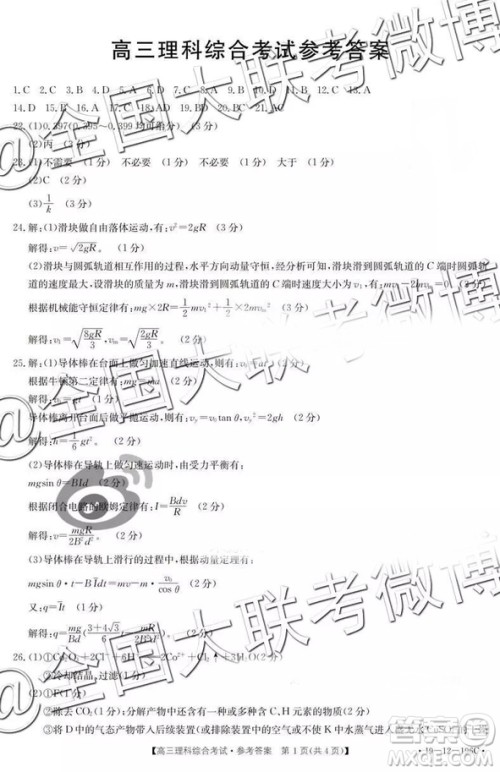 高三理科综合考试参考答案
1.C 2.C 3.B 4.D 5.D 6.B 7.C 8.A 9.D 10.B 11.A 12.C 13.A
14.D 15.B 17.C 18.AD 19.BD 20.BC 21.AC
22.(1)0.397(0.395~0.399均可给分) (3分)
(2)丙 (2分)
23.(1)不需要 (1分) 不必要 (1分) 不必要 (1分) 大于 (1分)
(2)C (2分)
(3)1/k (3分)
24.解:(1)滑块做自由落体运动,有:v²=2gR (3分)
解得:v=√2gR。 (1分)
(2)滑块与圆弧轨道作用的过程,水平方向动量守恒,经分析可知,滑块滑到圆弧轨道的C端时圆弧轨
道的速度最大,设滑块的质量为m,滑块滑到圆弧轨道的C端时的速度大小为v₁,有:mv₁-2m=0 (3分)
根据机械能守恒定律有:mg×2R=1/2mv₁²+1/2×2m (3分)
解得:v₁=√8gR/3, =√2gR/3。 (2分)
25.解:(1)导体棒在台面上做匀加速直线运动,有: (2分)
根据牛顿第二定律有:mg=ma (2分)
导体棒离开台面后做平抛运动,有:=v₀tanθ,v²=2gh (2分)
解得:h=1/6gt²。 (2分)
(2)导体棒在导轨上做匀速运动时,由受力平衡有:
mgsinθ=BId (2分)
根据闭合电路的欧姆定律有:I=Bdv/R (2分)
解得:v=mgR/2B²d²。 (2分)
(3)导体棒在导轨上滑行的过程中,由动量定理有:
mgsinθ·t-BĪdt=mv-m·v₀/cosθ (2分)
又:q=Īt (1分)
解得:q=mg/Bd(3+4√3/6t- (1分)
26.(1)① +2Cl⁻+6H⁺ 2Co²⁺+Cl₂↑ (2分)
②冷却结晶,过滤 (1分)
(2)① (1分)
②除去CO₂(1分);分别把结晶水合物含有的C、H元素的质量 (2分)
③将D中的气态产物带入后续装置(或排除装置中的空气或使K中水蒸气进入
高三理科综合考试·参考答案 第1页(共4页)
·19-12-106C·
@全国大联考微博
@全国大联考微博
@全国大联考微博